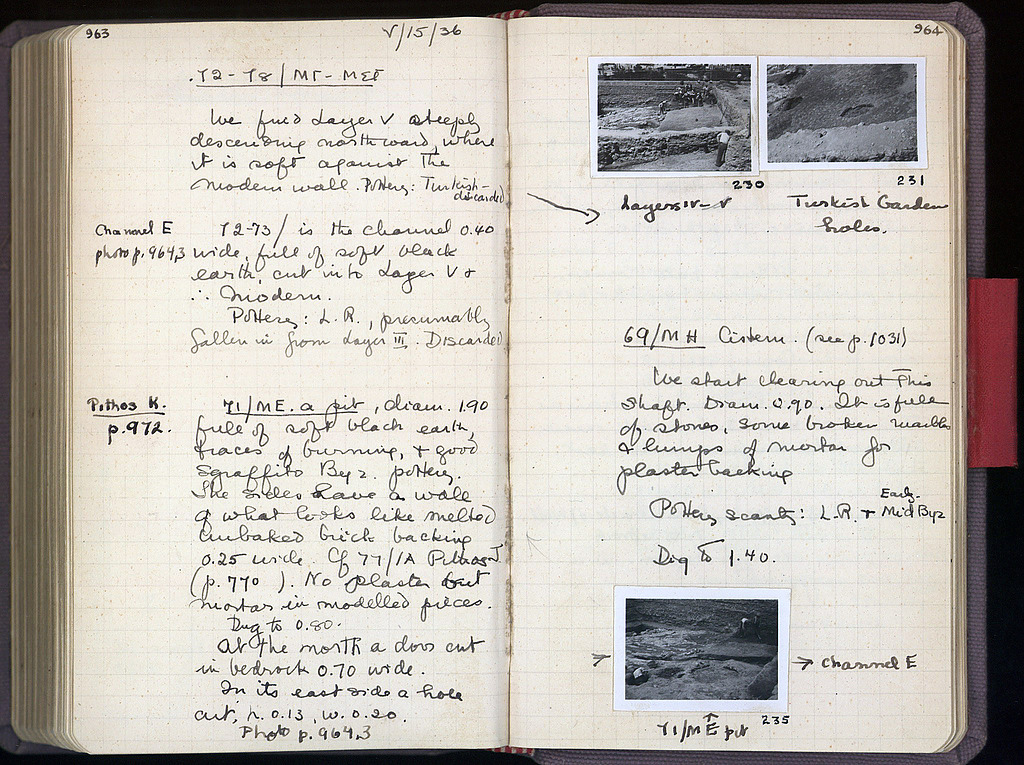 963
V/15/36
72-78/ΜΓ-ΜΣΤ
We find Layer V steeply
descending northward, where
it is soft against the
modern wall. Pottery: Turkish-
discarded
Channel E
photo p. 964,3
72-73/ is the channel 0.40
wide, full of soft black
earth, cut into Layer V &
∴ modern.
Pottery: L.R., presumably
fallen in from Layer III. Discarded
Pithos K.
p. 972.
71/ΜΕ. a pit, diam. 1.90
full of soft black earth,
traces of burning, & good
sgraffito Byz. pottery.
The sides have a wall
of what looks like melted
unbaked brick backing
0.25 wide. Cf 77/ΙΑ Pithos J
(p. 770 ). No plaster but
mortar in modelled pieces.
Dug to 0.80.
At the north a door cut
in bedrock 0.70 wide.
In its east side a hole
cut, h. 0.13, w. 0.20.
Photo p. 964,3
964
230
231
Layers IV-V
Turkish Garden
holes.
69/ΜΗ Cistern. (see p. 1031)
We start clearing out this
shaft. Diam. 0.90. It is full
of stones, some broken marbles
& lumps of mortar for
plaster backing
Early-
Pottery scanty: L.R. & Mid Byz
Dig to 1.40.
→ Channel E
235
71/ΜΕ pit